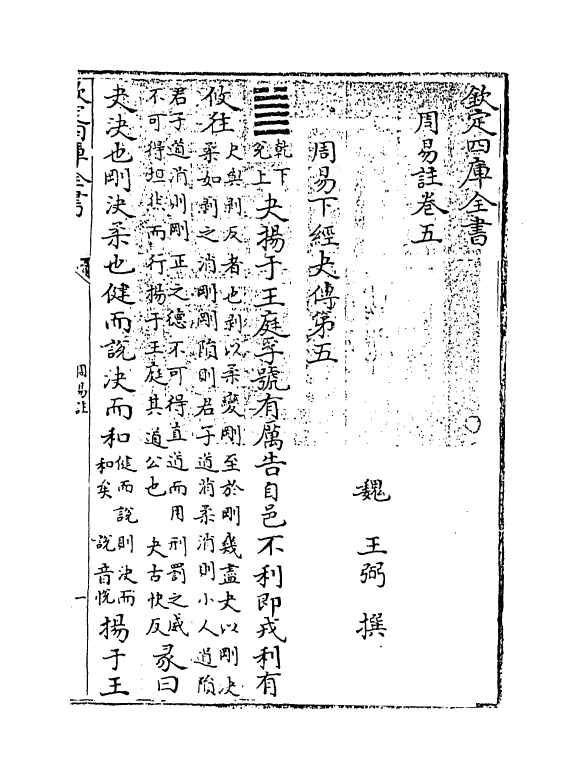 欽定四庫全書
周易註卷五
魏 王弼 撰
周易下經夬傳第五
乾下兌上夬揚于王庭孚號有厲告自邑不利即戎利有
攸往夬與剥反者也剥以柔變剛至於剛幾盡夬以剛決
柔如剥之消剛剛隕則君子道消柔消則小人道隕
君子道消則剛正之德不可得直道而用刑罰之威
不可得坦然而行揚于王庭其道公也 夬古快反彖曰
夬決也剛決柔也健而說決而和健而說則決而和矣 說音悅揚于王
欽定四庫全書
周易註
一